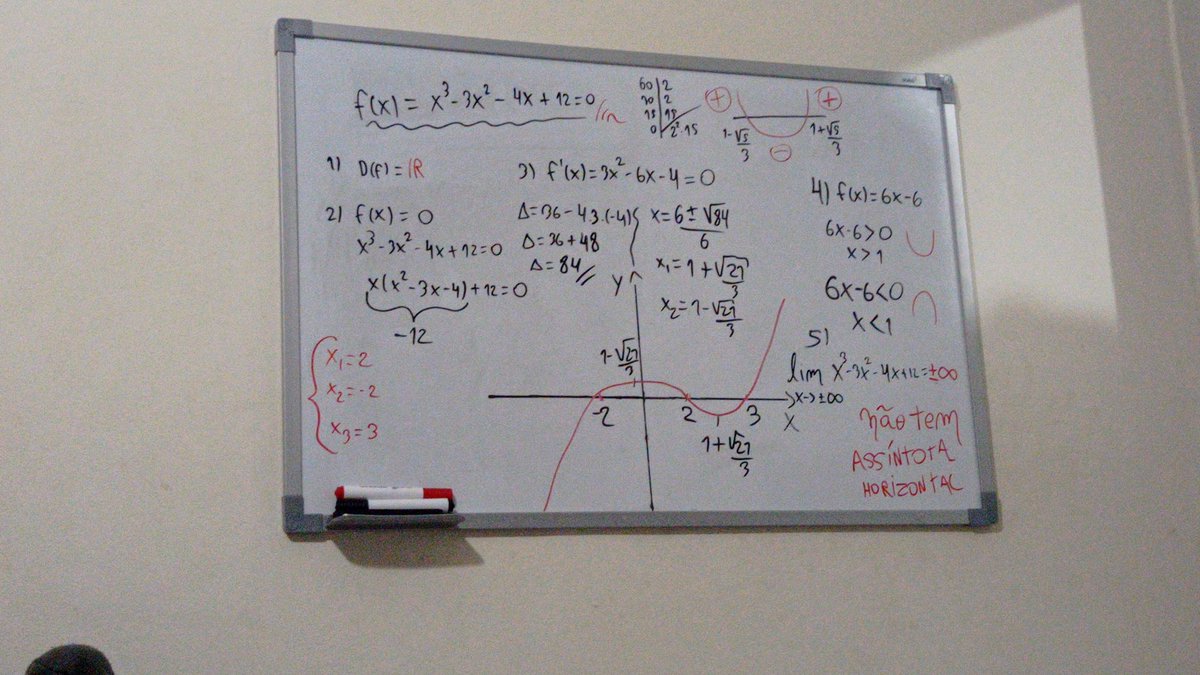 f(x) = x³-3x²-4x+12=0
60|2
30|2
15|15
0|2².15
+ +
1-√5/3 1+√5/3
-
1) D(f)=ℝ
2) f(x)=0
x³-3x²-4x+12=0
x(x²-3x-4)+12=0
-12
x₁=2
x₂=-2
x₃=3
3) f'(x)=3x²-6x-4=0
Δ=36-43.(-4)
Δ=36+48
Δ=84
x=6±√84/6
x₁=1+√21/3
x₂=1-√21/3
4) f(x)=6x-6
6x-6>0
x>1
6x-6<0
x<1
5)
lim x³-3x²-4x+12=±∞
x→±∞
não tem
ASSÍNTOTA
HORIZONTAL
Y
1-√21/3
-2 2 3 X
1+√21/3